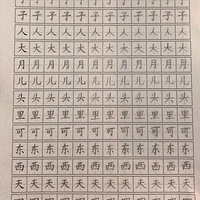 子子子子子子子子子子子
人人人人人人人人人人人
大大大大大大大大大大大
月月月月月月月月月月月
儿儿儿儿儿儿儿儿儿儿儿
头头头头头头头头头头头
里里里里里里里里里里里
可可可可可可可可可可可
东东东东东东东东东东东
西西西西西西西西西西西
天天天天天天天天天天天